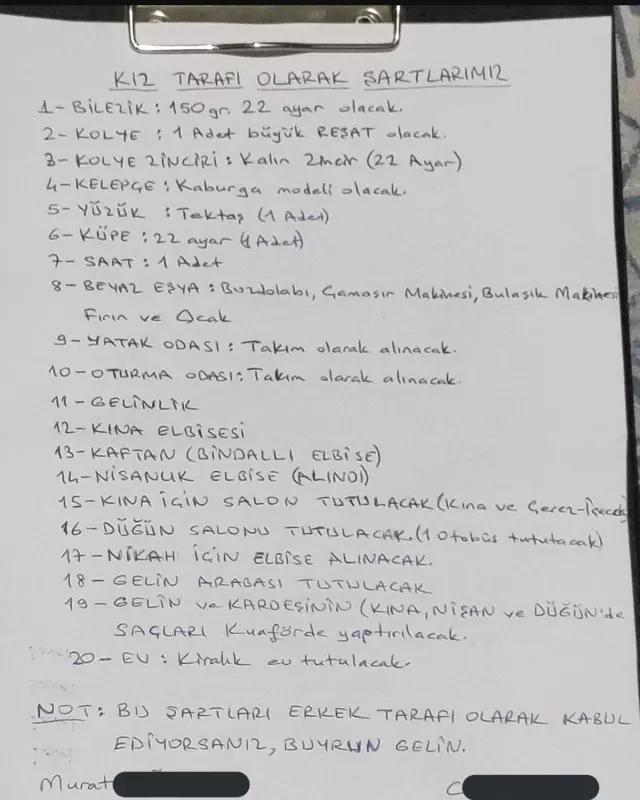 KIZ TARAFI OLARAK ŞARTLARIMIZ
1- BİLEZİK : 150 gr. 22 ayar olacak.
2- KOLYE : 1 Adet büyük REŞAT olacak.
3- KOLYE ZİNCİRİ : Kalın Zincir (22 Ayar)
4- KELEPÇE : Kaburga modeli olacak.
5- YÜZÜK : Tektaş (1 Adet)
6- KÜPE : 22 ayar (1 Adet)
7- SAAT : 1 Adet
8- BEYAZ EŞYA : Buzdolabı, Çamaşır Makinesi, Bulaşık Makinesi
Fırın ve Ocak
9- YATAK ODASI : Takım olarak alınacak.
10- OTURMA ODASI : Takım olarak alınacak.
11- GELİNLİK
12- KINA ELBİSESİ
13- KAFTAN (BİNDALLI ELBİSE)
14- NİŞANLIK ELBİSE (ALINDI)
15- KINA İÇİN SALON TUTULACAK (Kına ve Çerez-İçecek)
16- DÜĞÜN SALONU TUTULACAK. (1 Otobüs tutulacak)
17- NİKAH İÇİN ELBİSE ALINACAK.
18- GELİN ARABASI TUTULACAK
19- GELİN ve KARDEŞİNİN (KINA, NİŞAN ve DÜĞÜN'de
SAÇLARI Kuaförde yaptırılacak.
20- EV : Kiralık ev tutulacak.
NOT: BU ŞARTLARI ERKEK TARAFI OLARAK KABUL
EDİYORSANIZ, BUYRUN GELİN.
Murat